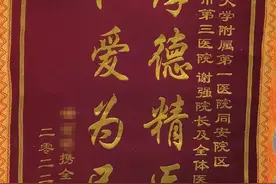 大学附属第一医院同安院区
市第三医院 谢强院长及全体医
厚德精医
爱为民
携全
二〇二二